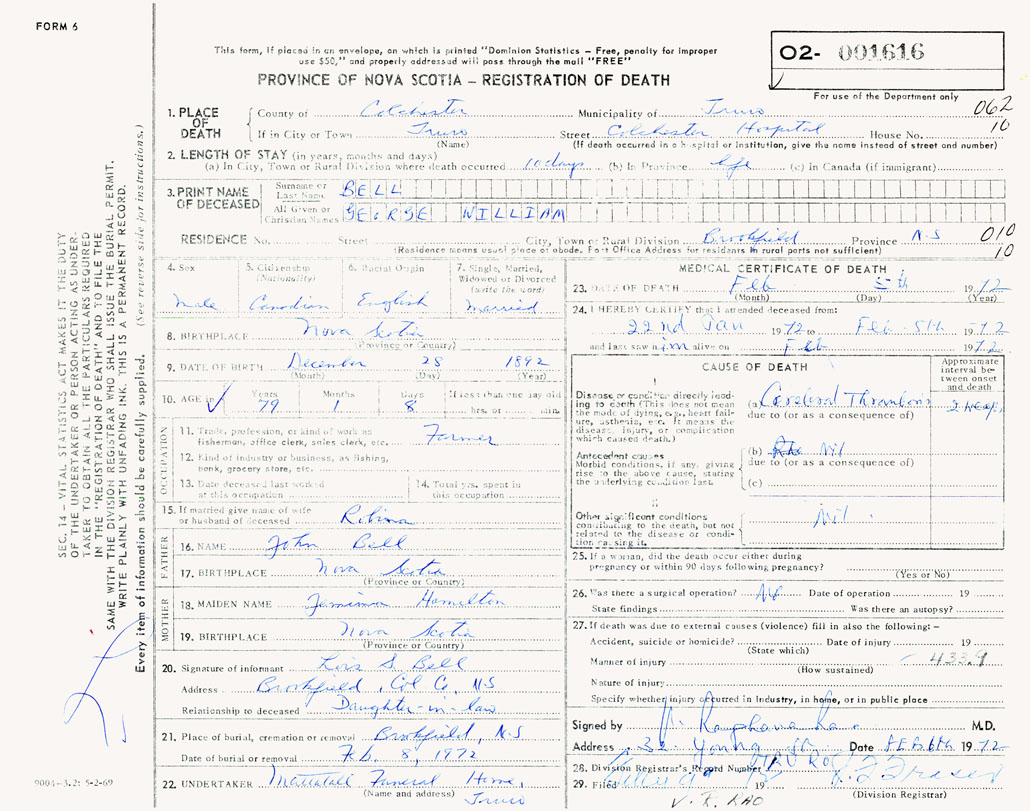 FORM 6
This form, if placed in an envelope, on which is printed "Dominion Statistics – Free, penalty for improper
use $50," and properly addressed will pass through the mail "FREE"
PROVINCE OF NOVA SCOTIA – REGISTRATION OF DEATH
02- 001616
For use of the Department only
062
10
1. PLACE OF DEATH
County of Colchester Municipality of Truro
If in City or Town Truro Street Colchester Hospital House No.
(Name) (If death occurred in a hospital or institution, give the name instead of street and number)
2. LENGTH OF STAY (in years, months and days)
(a) In City, Town or Rural Division where death occurred 10 days (b) In Province life (c) in Canada (if immigrant)
3. PRINT NAME OF DECEASED
Surname or Last Name BELL
All Given or Christian Names GEORGE WILLIAM
RESIDENCE No. Street City, Town or Rural Division Brookfield Province N.S
(Residence means usual place of abode. Post Office Address for residents in rural parts not sufficient)
010
10
4. Sex Male
5. Citizenship (Nationality) Canadian
6. Racial Origin English
7. Single, Married, Widowed or Divorced (write the word) Married
8. BIRTHPLACE Nova Scotia
(Province or Country)
9. DATE OF BIRTH December 28 1892
(Month) (Day) (Year)
10. AGE in Years 79 Months 1 Days 8 If less than one day old hrs. or min.
OCCUPATION
11. Trade, profession, or kind of work as
fisherman, office clerk, sales clerk, etc. Farmer
12. Kind of industry or business, as fishing,
bank, grocery store, etc.
13. Date deceased last worked
at this occupation
14. Total yrs. spent in
this occupation
15. If married give name of wife
or husband of deceased Robina
FATHER
16. NAME John Bell
17. BIRTHPLACE Nova Scotia
(Province or Country)
MOTHER
18. MAIDEN NAME Jemima Hamilton
19. BIRTHPLACE Nova Scotia
(Province or Country)
20. Signature of informant Lois S. Bell
Address Brookfield, Col Co, N.S
Relationship to deceased Daughter-in-law
21. Place of burial, cremation or removal Brookfield, N.S
Date of burial or removal Feb. 8, 1972
22. UNDERTAKER Mattatall Funeral Home,
(Name and address) Truro
MEDICAL CERTIFICATE OF DEATH
23. DATE OF DEATH Feb 5th 1972
(Month) (Day) (Year)
24. I HEREBY CERTIFY that I attended deceased from:
22nd Jan 1972 to Feb 5th 1972
and last saw him alive on Feb 1972
CAUSE OF DEATH
Approximate interval between onset and death
I
Disease or condition directly leading
to death (This does not mean
the mode of dying, e.g., heart failure,
asthenia, etc. It means the
disease, injury, or complication
which caused death.)
(a) Cerebral Thrombosis
due to (or as a consequence of)
Antecedent causes
Morbid conditions, if any, giving
rise to the above cause, stating
the underlying condition last.
(b) Nil
due to (or as a consequence of)
(c)
II
Other significant conditions
contributing to the death, but not
related to the disease or condition
causing it. Nil
25. If a woman, did the death occur either during
pregnancy or within 90 days following pregnancy?
(Yes or No)
26. Was there a surgical operation? No Date of operation 19
State findings Was there an autopsy?
27. If death was due to external causes (violence) fill in also the following: –
Accident, suicide or homicide? Date of injury 19
(State which)
Manner of injury 433.9
(How sustained)
Nature of injury
Specify whether injury occurred in Industry, in home, or in public place
Signed by M.D.
Address 32 Young St Date Feb 6th 1972
28. Division Registrar's Record Number
29. Filed 19
(Division Registrar)
V. R. RAO
SEC. 14 – VITAL STATISTICS ACT MAKES IT THE DUTY
OF THE UNDERTAKER OR PERSON ACTING AS UNDERTAKER
TO OBTAIN ALL THE PARTICULARS REQUIRED
IN THE "REGISTRATION OF DEATH" AND TO FILE THE
SAME WITH THE DIVISION REGISTRAR WHO SHALL ISSUE THE BURIAL PERMIT.
WRITE PLAINLY WITH UNFADING INK. THIS IS A PERMANENT RECORD.
Every item of information should be carefully supplied. (See reverse side for instructions.)
9004-3.2: 5-2-69